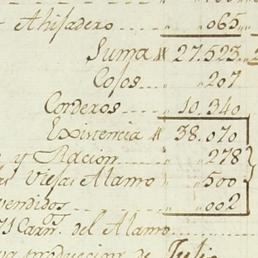 Ahijadero.... " .. 065..
Suma # 27.523..
Cojos.... " .. 207
Corderos.... 10.340
Existencia # 38.070
y Racion.... " .. 278
Viejas Alamo) " .. 500
vendidos.... " .. 002
Carn.s del Alamo......
produccion de Julio